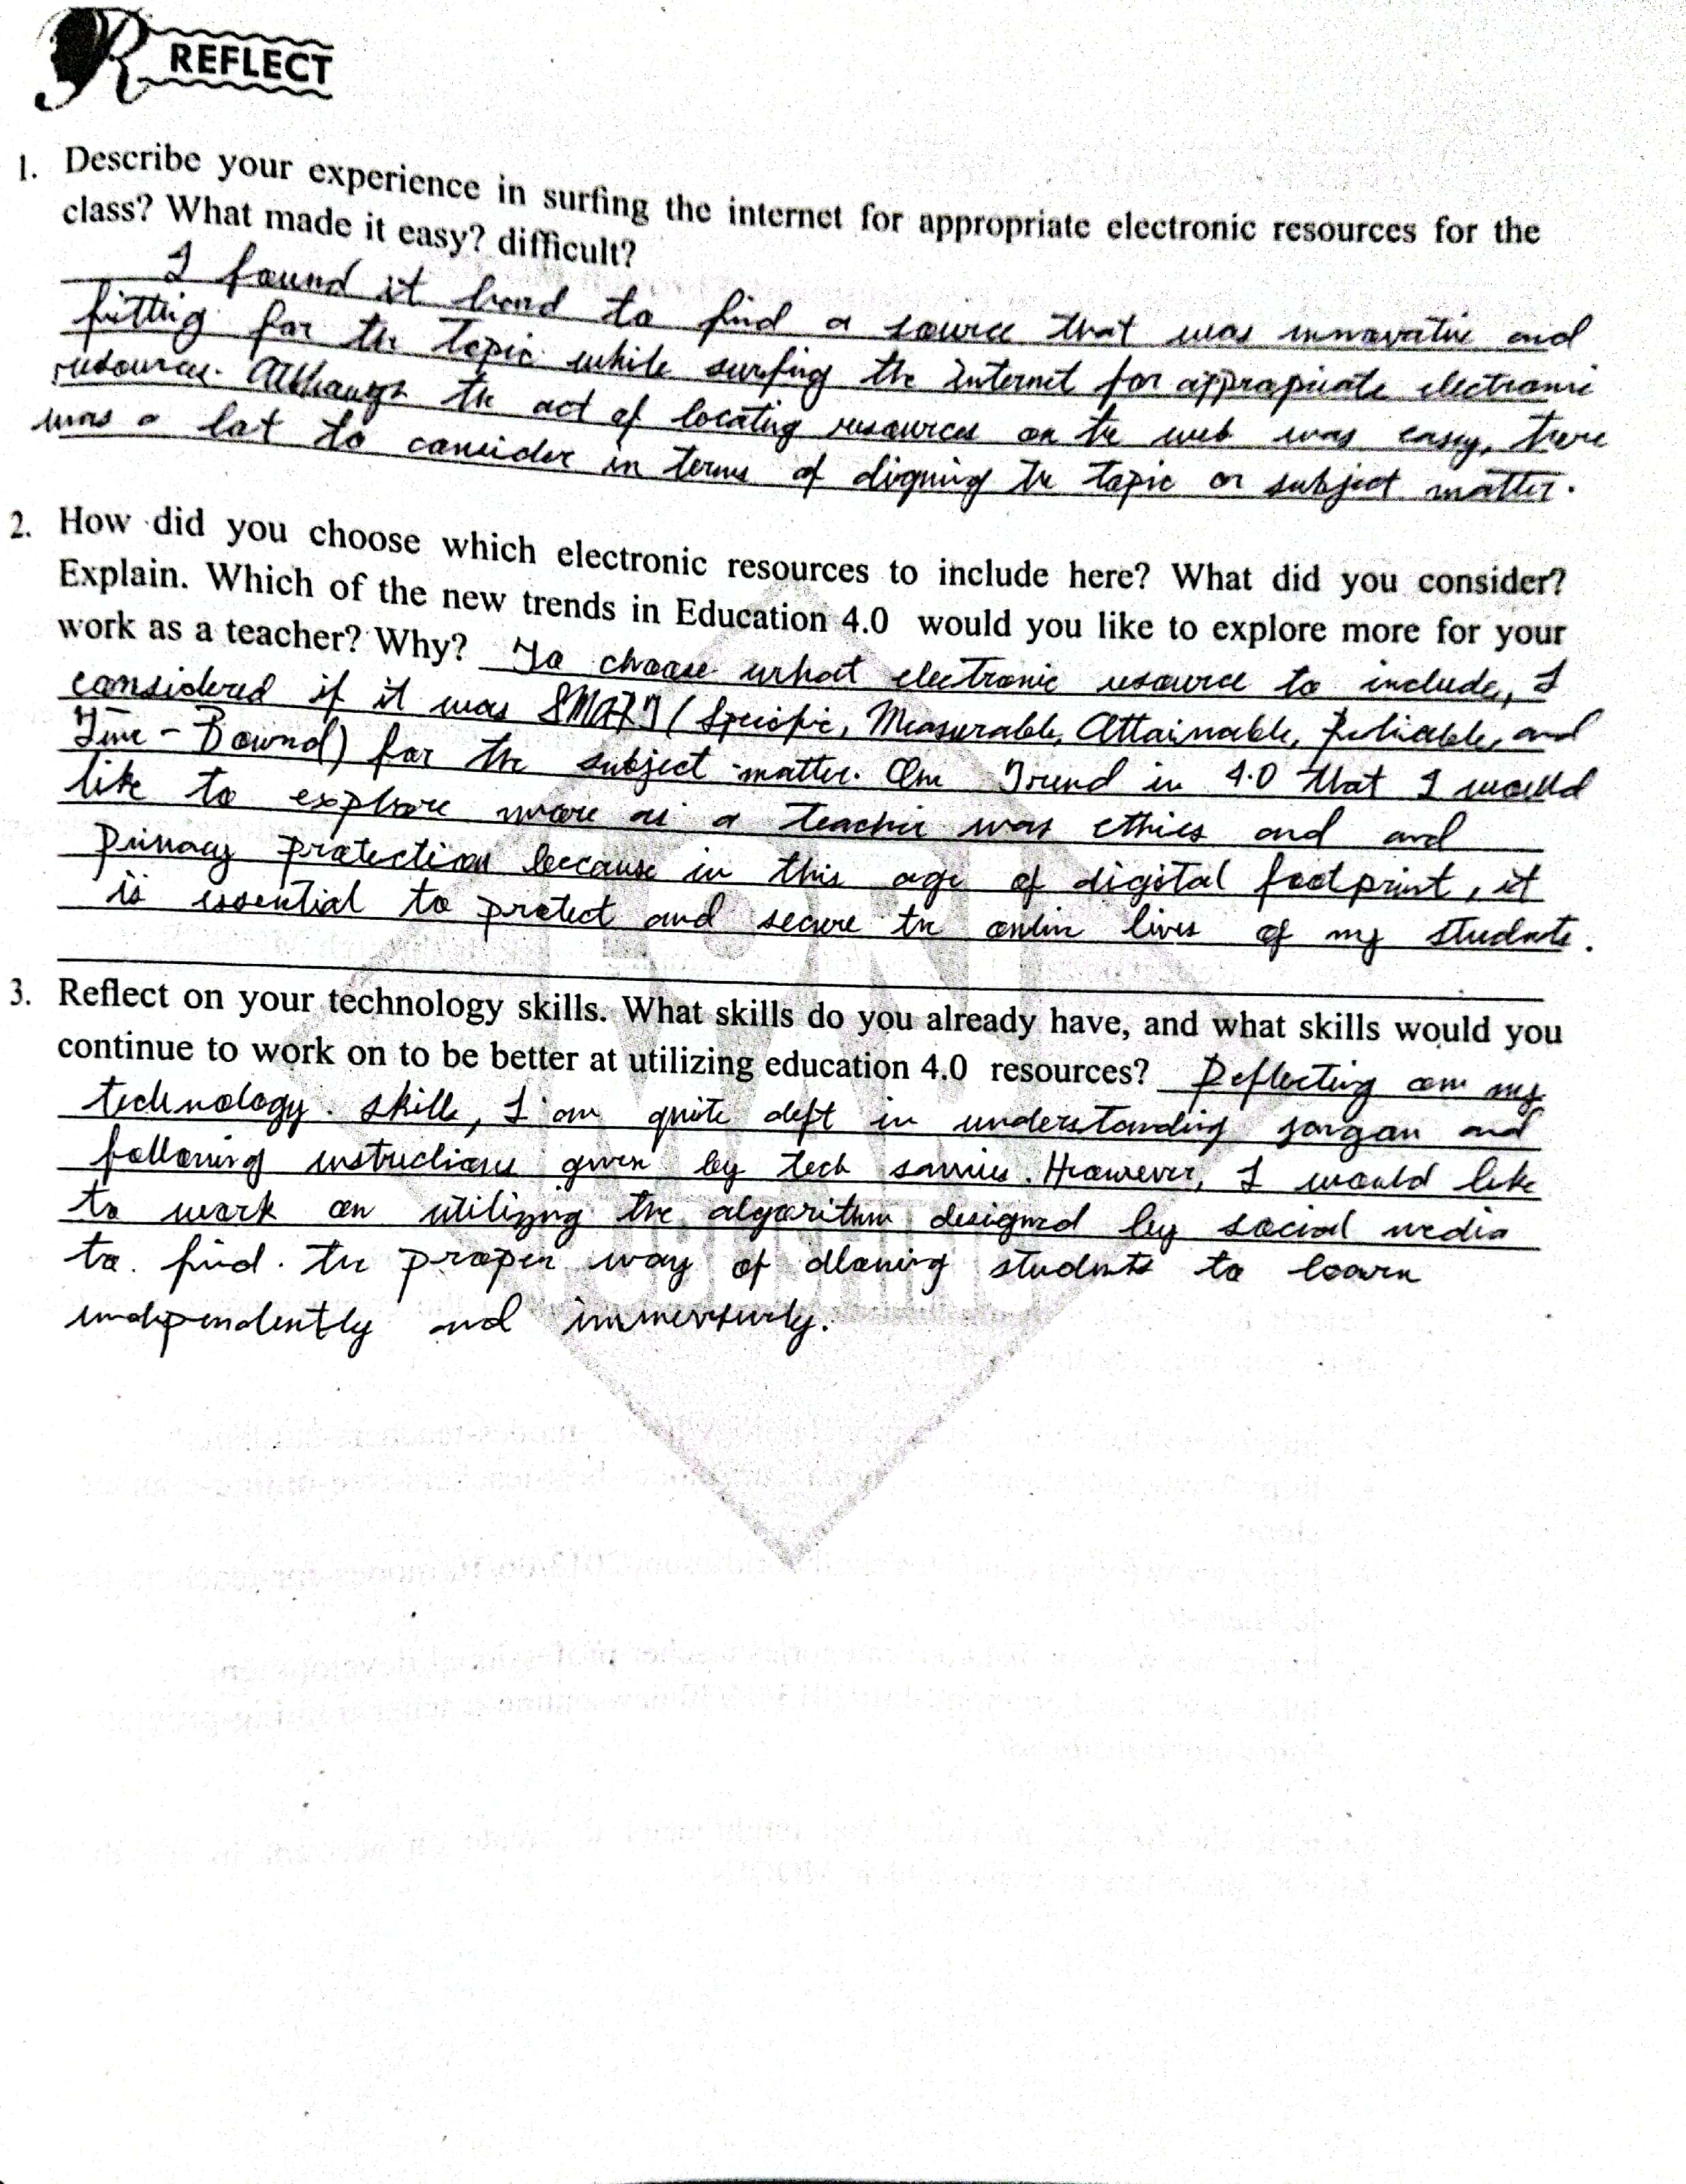 REFLECT
1. Describe your experience in surfing the internet for appropriate electronic resources for the
class? What made it easy? difficult?
I found it hard to find a source that was innovative and
fitting for the topic while surfing the Internet for appropriate electronic
resources. Although the act of locating resources on the web was easy, there
was a lot to consider in terms of aligning the topic or subject matter.
2. How did you choose which electronic resources to include here? What did you consider?
Explain. Which of the new trends in Education 4.0 would you like to explore more for your
work as a teacher? Why? To choose what electronic resource to include, I
considered if it was SMART (Specific, Measurable, Attainable, Reliable, and
Time-Bound) for the subject matter. One Trend in 4.0 that I would
like to explore more as a teacher was ethics and and
privacy protection because in this age of digital footprint, it
is essential to protect and secure the online lives of my students.
3. Reflect on your technology skills. What skills do you already have, and what skills would you
continue to work on to be better at utilizing education 4.0 resources? Reflecting on my
technology skills, I am quite deft in understanding jargon and
following instructions given by tech savvies. However, I would like
to work on utilizing the algorithm designed by social media
to find the proper way of allowing students to learn
independently and immersively.